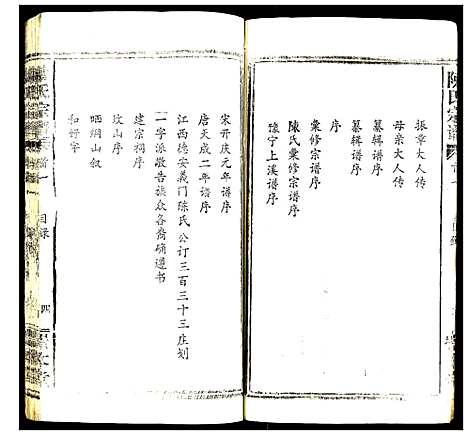 陳氏宗譜
振章大人传
母亲大人传
纂辑谱序
纂辑谱序
序
彙修宗谱序
陳氏彙修宗谱序
豫宁上溪谱序
宋开庆元年谱序
唐天成二年谱序
江西德安义门陈氏公订三百三十三庄划
一字派敬告族众各裔确遵书
建宗祠序
坟山序
晒網山叙
和好字
目录
四